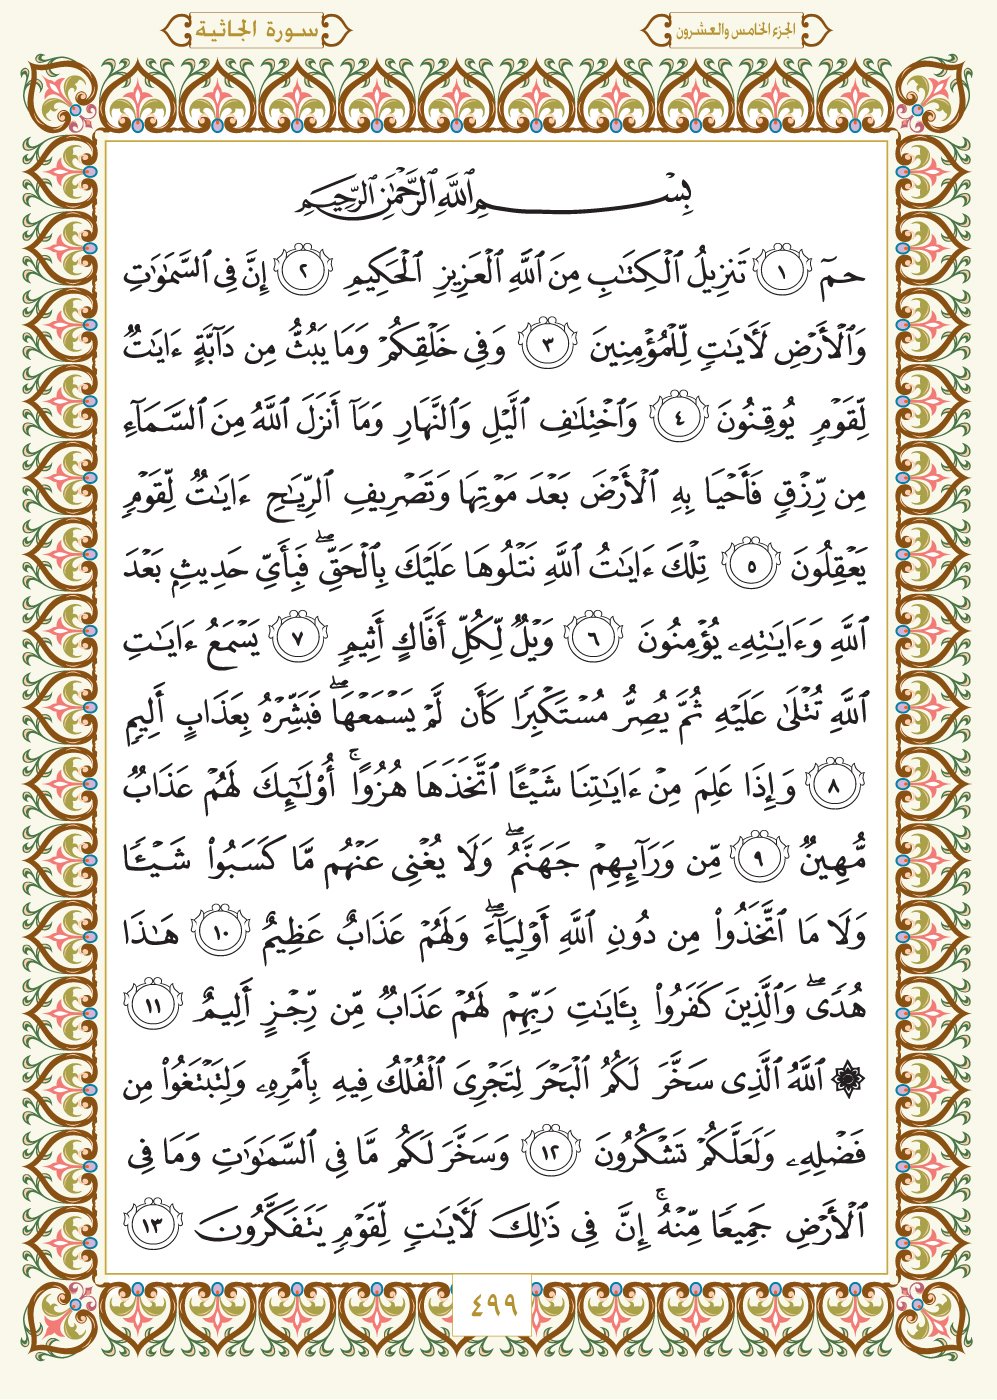 الجزء الخامس والعشرون
سورة الجاثية
بِسْمِ ٱللَّهِ ٱلرَّحْمَٰنِ ٱلرَّحِيمِ
حمٓ ١ تَنزِيلُ ٱلْكِتَٰبِ مِنَ ٱللَّهِ ٱلْعَزِيزِ ٱلْحَكِيمِ ٢ إِنَّ فِى ٱلسَّمَٰوَٰتِ
وَٱلْأَرْضِ لَءَايَٰتٍ لِّلْمُؤْمِنِينَ ٣ وَفِى خَلْقِكُمْ وَمَا يَبُثُّ مِن دَآبَّةٍ ءَايَٰتٌ
لِّقَوْمٍ يُوقِنُونَ ٤ وَٱخْتِلَٰفِ ٱلَّيْلِ وَٱلنَّهَارِ وَمَآ أَنزَلَ ٱللَّهُ مِنَ ٱلسَّمَآءِ
مِن رِّزْقٍ فَأَحْيَا بِهِ ٱلْأَرْضَ بَعْدَ مَوْتِهَا وَتَصْرِيفِ ٱلرِّيَٰحِ ءَايَٰتٌ لِّقَوْمٍ
يَعْقِلُونَ ٥ تِلْكَ ءَايَٰتُ ٱللَّهِ نَتْلُوهَا عَلَيْكَ بِٱلْحَقِّ ۖ فَبِأَىِّ حَدِيثٍۭ بَعْدَ
ٱللَّهِ وَءَايَٰتِهِۦ يُؤْمِنُونَ ٦ وَيْلٌ لِّكُلِّ أَفَّاكٍ أَثِيمٍ ٧ يَسْمَعُ ءَايَٰتِ
ٱللَّهِ تُتْلَىٰ عَلَيْهِ ثُمَّ يُصِرُّ مُسْتَكْبِرًا كَأَن لَّمْ يَسْمَعْهَا ۖ فَبَشِّرْهُ بِعَذَابٍ أَلِيمٍ
٨ وَإِذَا عَلِمَ مِنْ ءَايَٰتِنَا شَيْـًٔا ٱتَّخَذَهَا هُزُوًا ۚ أُو۟لَٰٓئِكَ لَهُمْ عَذَابٌ
مُّهِينٌ ٩ مِّن وَرَآئِهِمْ جَهَنَّمُ ۖ وَلَا يُغْنِى عَنْهُم مَّا كَسَبُوا۟ شَيْـًٔا
وَلَا مَا ٱتَّخَذُوا۟ مِن دُونِ ٱللَّهِ أَوْلِيَآءَ ۖ وَلَهُمْ عَذَابٌ عَظِيمٌ ١٠ هَٰذَا
هُدًى ۖ وَٱلَّذِينَ كَفَرُوا۟ بِـَٔايَٰتِ رَبِّهِمْ لَهُمْ عَذَابٌ مِّن رِّجْزٍ أَلِيمٌ ١١
۞ ٱللَّهُ ٱلَّذِى سَخَّرَ لَكُمُ ٱلْبَحْرَ لِتَجْرِىَ ٱلْفُلْكُ فِيهِ بِأَمْرِهِۦ وَلِتَبْتَغُوا۟ مِن
فَضْلِهِۦ وَلَعَلَّكُمْ تَشْكُرُونَ ١٢ وَسَخَّرَ لَكُم مَّا فِى ٱلسَّمَٰوَٰتِ وَمَا فِى
ٱلْأَرْضِ جَمِيعًا مِّنْهُ ۚ إِنَّ فِى ذَٰلِكَ لَءَايَٰتٍ لِّقَوْمٍ يَتَفَكَّرُونَ ١٣
٤٩٩